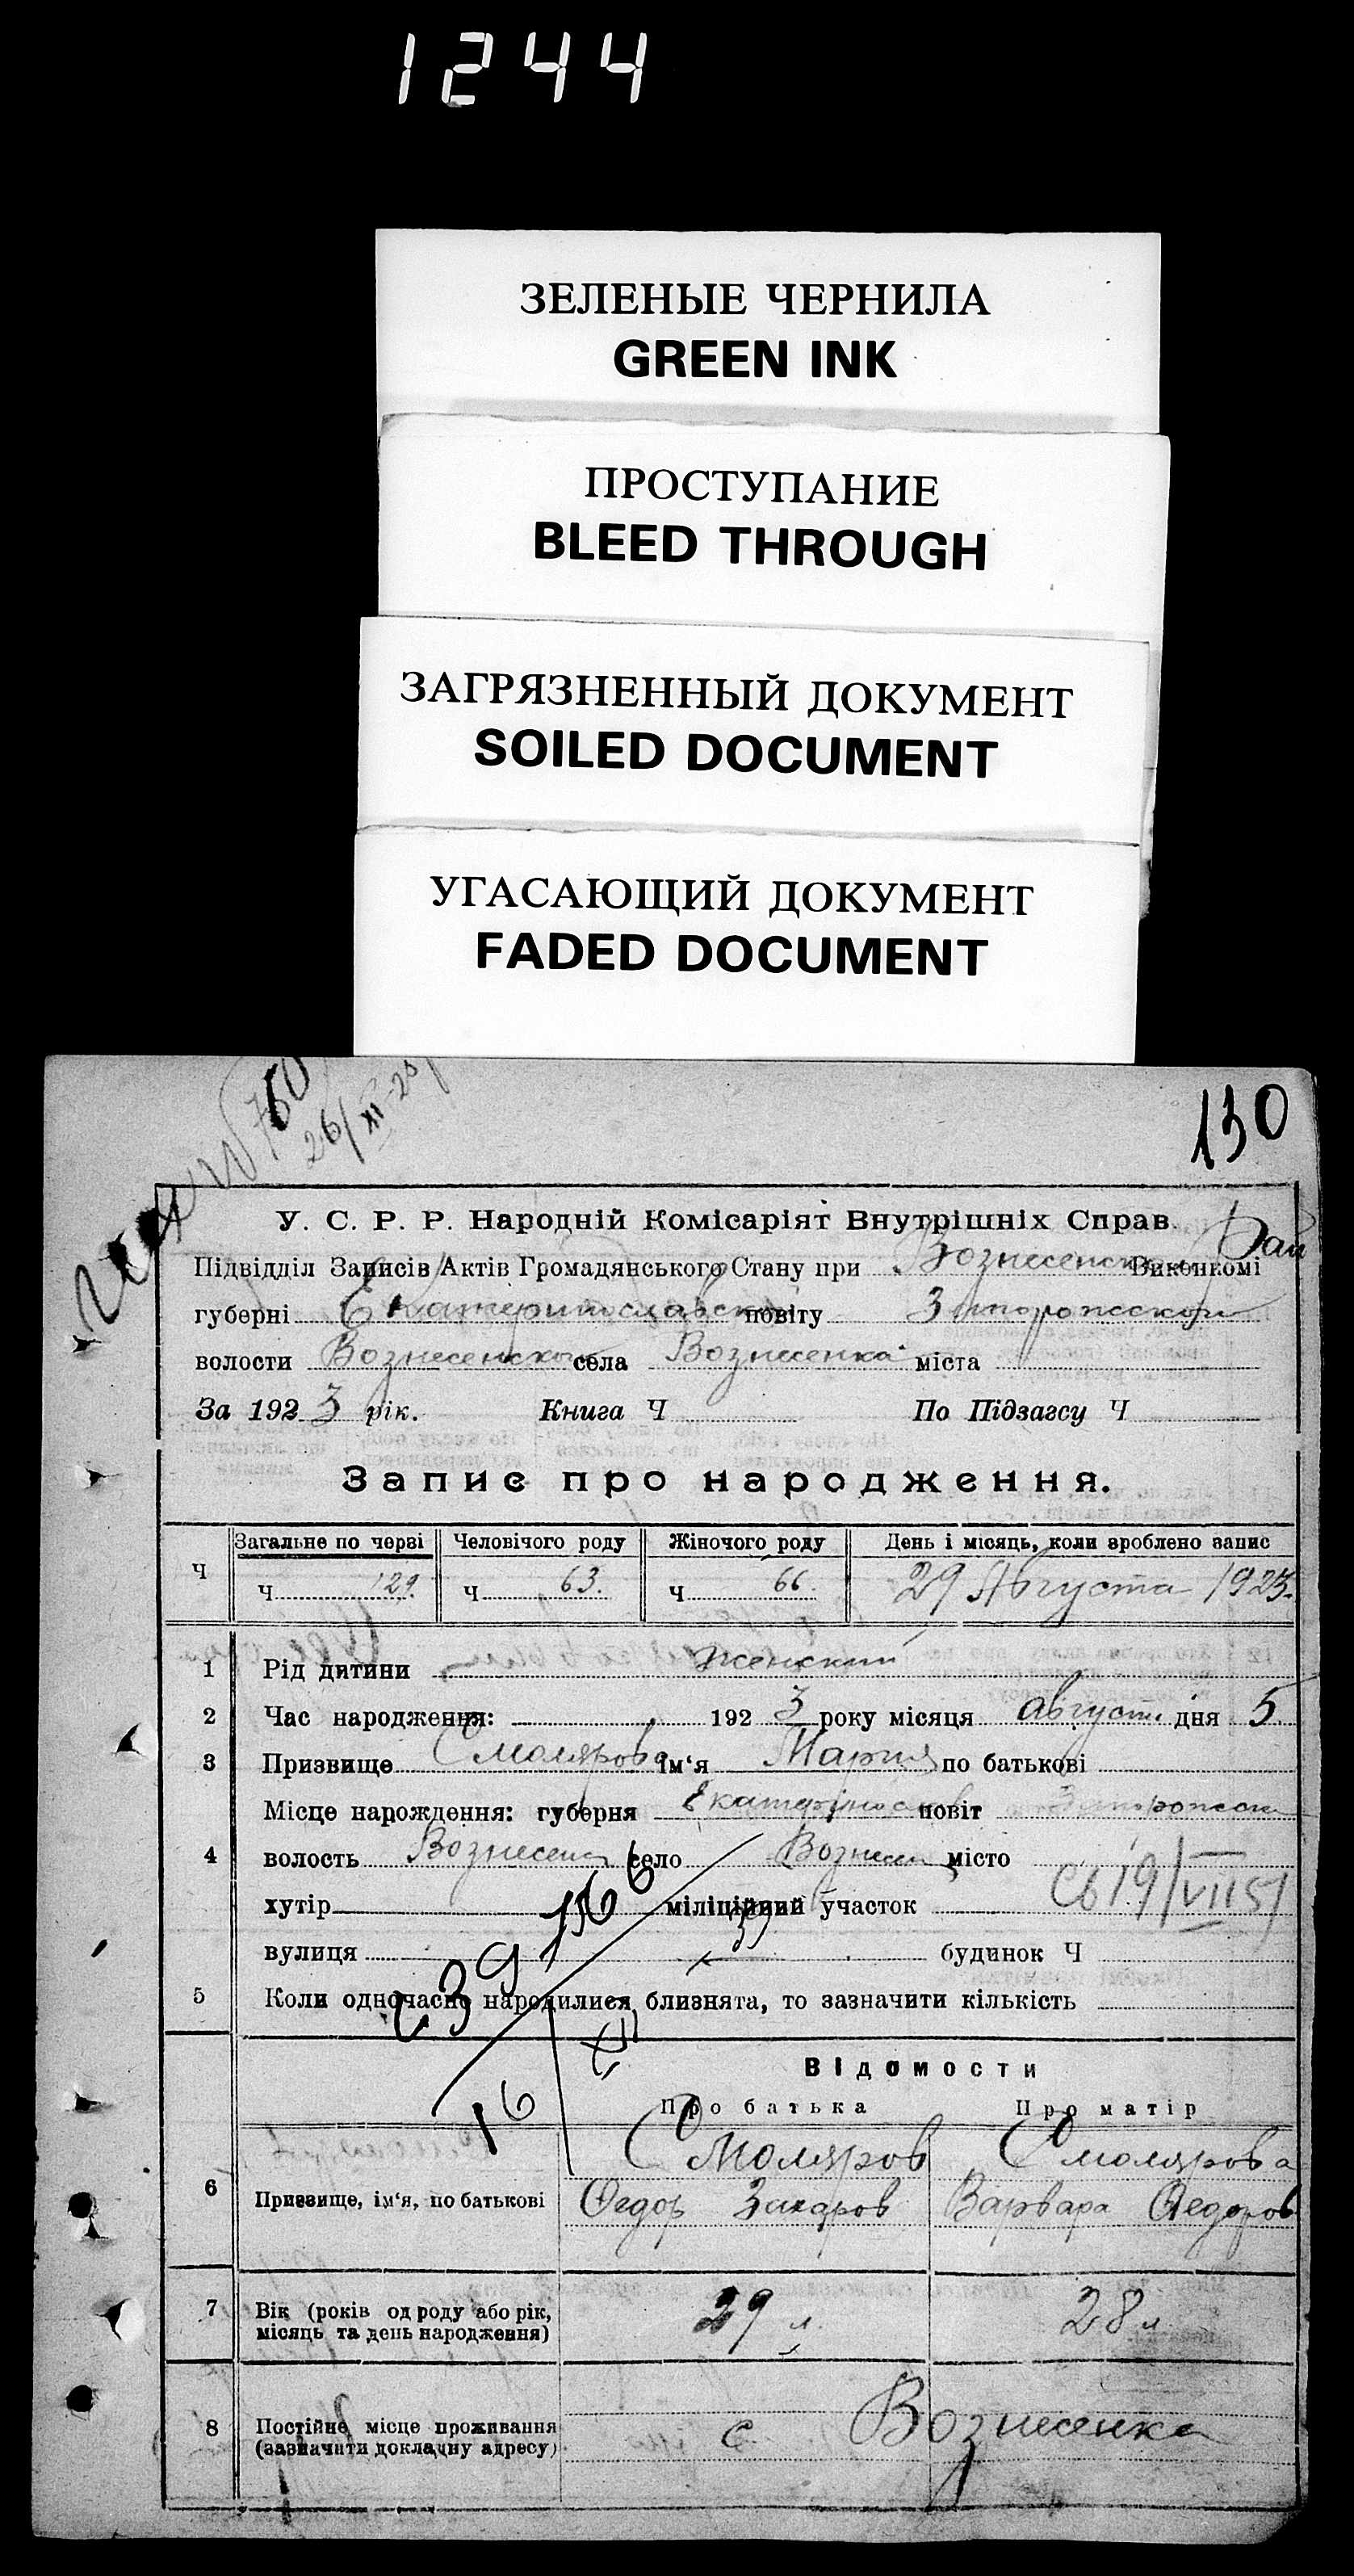 1244
ЗЕЛЕНЫЕ ЧЕРНИЛА
GREEN INK
ПРОСТУПАНИЕ
BLEED THROUGH
ЗАГРЯЗНЕННЫЙ ДОКУМЕНТ
SOILED DOCUMENT
УГАСАЮЩИЙ ДОКУМЕНТ
FADED DOCUMENT
130
У. С. Р. Р. Народній Комісаріят Внутрішніх Справ.
Підвідділ Записів Актів Громадянського Стану при Вознесенском Рай Виконкомі
губерні Екатеринославской повіту Запорожской
волости Вознесенской села Вознесенка міста
За 1923 рік. Книга Ч По Підзагсу Ч
Запис про народження.
Ч Загальне по черзі Человічого роду Жіночого роду День і місяць, коли зроблено запис
Ч 129 Ч 63. Ч 66. 29 Августа 1923.
1 Рід дитини женский
2 Час народження: 1923 року місяця август дня 5.
3 Призвище Смолярова ім'я Мария по батькові
Місце народження: губерня Екатеринослав повіт Запорожск
4 волость Вознесен село Вознесен місто
хутір міліційний участок
вулиця будинок Ч
5 Коли одночасно народилися близнята, то зазначити кількість
Відомости
Про батька Про матір
Смоляров Смолярова
6 Призвище, ім'я, по батькові Федор Захаров Варвара Федоров
7 Вік (років од роду або рік, 29 л. 28 л
місяць та день народження)
8 Постійне місце проживання с. Вознесенка
(зазначити докладну адресу)